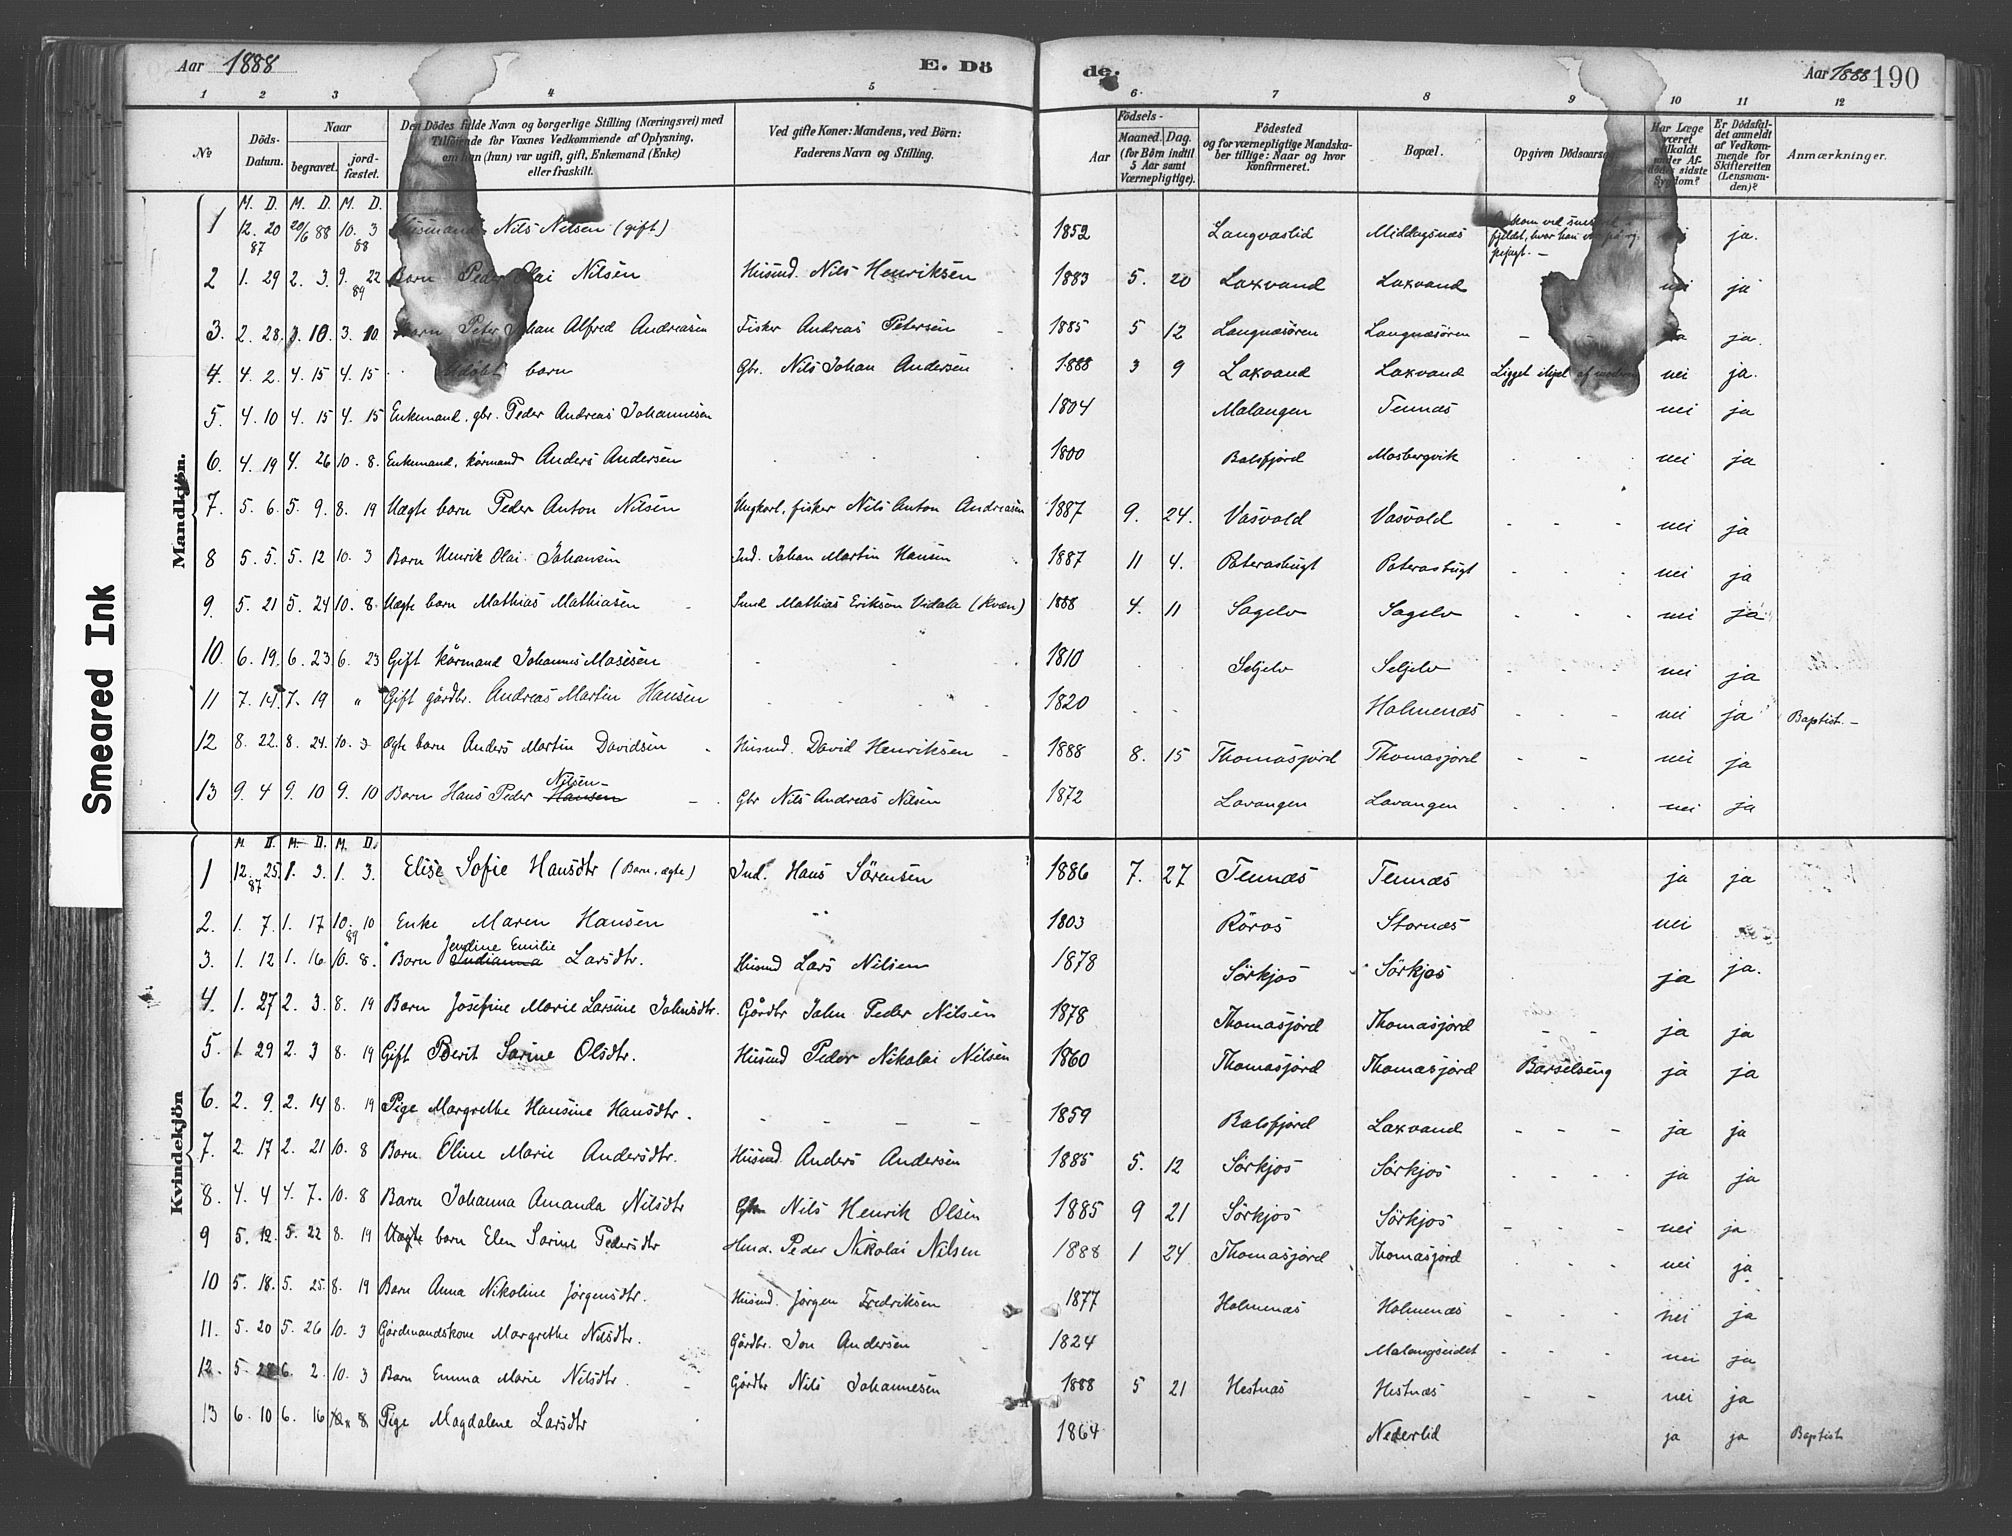 Aar 1888 E. Dö
de. Aar 1888 190
1 2 3 4 5 6 7 8 9 10 11 12
№ Döds-Datum. Naar begravet. jord-fæstet. Den Dödes fulde Navn og borgerlige Stilling (Næringsvei) med Tilföiende for Voxnes Vedkommende af Oplysning, om han (hun) var ugift, gift, Enkemand (Enke) eller fraskilt. Ved gifte Koner: Mandens, ved Börn: Faderens Navn og Stilling. Aar Födsels- Maaned. Dag. (for Börn indtil 5 Aar samt Værnepligtige). Födested og for værnepligtige Mandskaber tillige: Naar og hvor konfirmeret. Bopæl. Opgiven Dödsaarsag Har Læge været tilkaldt under Afdödes sidste Sygdom? Er Dödsfaldet anmeldt af Vedkommende for Skifteretten (Lensmanden)? Anmærkninger.
Mandkjön.
M. D. M. D. M. D.
1 12. 20 87 20/6 88 10. 3 88 Husmand Nils Nilsen (gift) 1852 Langvaslid Middagsnæs ja.
2 1. 29 2. 3. 9. 22 89 Barn Peder Olai Nilsen Husmd. Nils Henriksen 1883 5. 20 Laxvand Laxvand nei ja
3. 2. 28. 3. 10 3. 10 Barn Peter Johan Alfred Andreasen Fisker Andreas Petersen 1885 5 12 Langnæsören Langnæsören - - ja ja.
4. 4. 2. 4. 15 4. 15 Udöbt barn Gbr. Nils Johan Andersen 1888 3 9 Laxvand Laxvand Ligget ihjel af moderen nei ja.
5. 4. 10 4. 15 4. 15 Enkemand. gbr. Peder Andreas Johannesen 1804 Malangen Tennæs nei ja
6. 4. 19 4. 26 10. 8. Enkemand, kårmand Anders Andersen 1800 Balsfjord Mosbergvik nei ja
7. 5. 6. 5. 9. 8. 19 Uægte barn Peder Anton Nilsen Ungkarl, fisker Nils Anton Andreasen 1887 9. 24. Vasvold Vasvold nei ja
8 5. 5. 5. 12 10. 3 Barn Henrik Olai Johansen Ind. Johan Martin Hansen 1887 11 4. Paterasbugt Paterasbugt nei ja
9. 5. 21 5. 24 10. 8. Uægte barn Mathias Mathiasen Smd Mathias Erikson Vidala (kvæn) 1888 4. 11 Sagelv Sagelv nei ja
10. 6. 19. 6. 23 6. 23 Gift kårmand Johannes Mosesen 1810 Seljelv Seljelv nei ja
11 7. 14. 7. 19 " Gift gårdbr. Andreas Martin Hansen 1820 Holmenæs nei ja Baptist. -
12 8. 22. 8. 24. 10. 3 ægte barn Anders Martin Davidsen Husmd. David Henriksen 1888 8. 15 Thomasjord Thomasjord nei ja
13 9. 4 9. 10 9. 10 Barn Hans Peder Hansen Nilsen Gbr Nils Andreas Nilsen 1872 Lavangen Lavangen nei ja
Kvindekjön
M. D. M. D. M. D.
1 12. 25. 87 1. 3. 1. 3. Elise Sofie Hansdtr (Barn, ægte) Ind. Hans Sörensen 1886 7. 27 Tennæs Tennæs ja ja
2. 1. 7. 1. 17 10. 10 89 Enke Maren Hansen 1803 Röros Stornæs nei
3. 1. 12 1. 16 10. 8. Barn Jendine Emilie Larsdtr. Husmd Lars Nilsen 1878 Sörkjos Sörkjos ja ja.
4. 1. 27 2. 3. 8. 19 Barn Josefine Marie Larsine Johnsdtr. Gårdbr John Peder Nilsen 1878 Thomasjord Thomasjord ja ja
5. 1. 29 2. 3 8. 19 Gift Berit Sarine Olsdtr. Husmd Peder Nikolai Nilsen 1860 Thomasjord Thomasjord Barselseng ja ja
6. 2. 9. 2. 14 8. 19 Pige Margrethe Hansine Hansdtr. 1859 Balsfjord Laxvand ja ja
7. 2. 17 2. 21 10. 8 Barn Oline Marie Andersdtr. Husmd. Anders Andersen 1885 5. 12 Sörkjos Sörkjos ja ja
8. 4. 4 4. 7. 10. 8 Barn Johanna Amanda Nilsdtr Nils Henrik Olsen 1885 9 21 Sörkjos Sörkjos nei ja
9 5. 12. 5. 22 8. 19 Uægte barn Elen Sarine Pedersdtr Hmd. Peder Nikolai Nilsen 1888 1 24 Thomasjord Thomasjord nei ja
10 5. 18. 5. 25. 8. 19 Barn Anna Nikoline Jørgensdtr. Husmd. Jørgen Fredriksen 1877 Holmenæs Holmenæs nei ja
11. 5. 20 5. 26 10. 3 Gårdmandskone Margrethe Nilsdtr. Gårdbr. Jon Andersen 1824 Malangseidet nei ja
12. 5. 28 6. 2. 10. 3 Barn Emma Marie Nilsdtr. Gårdbr Nils Johannesen 1888 5 21 Hestnæs Hestnæs nei ja
13 6. 10 6. 16 8. Pige Magdalene Larsdtr 1864 Nederlid ja ja Baptist
Smeared Ink